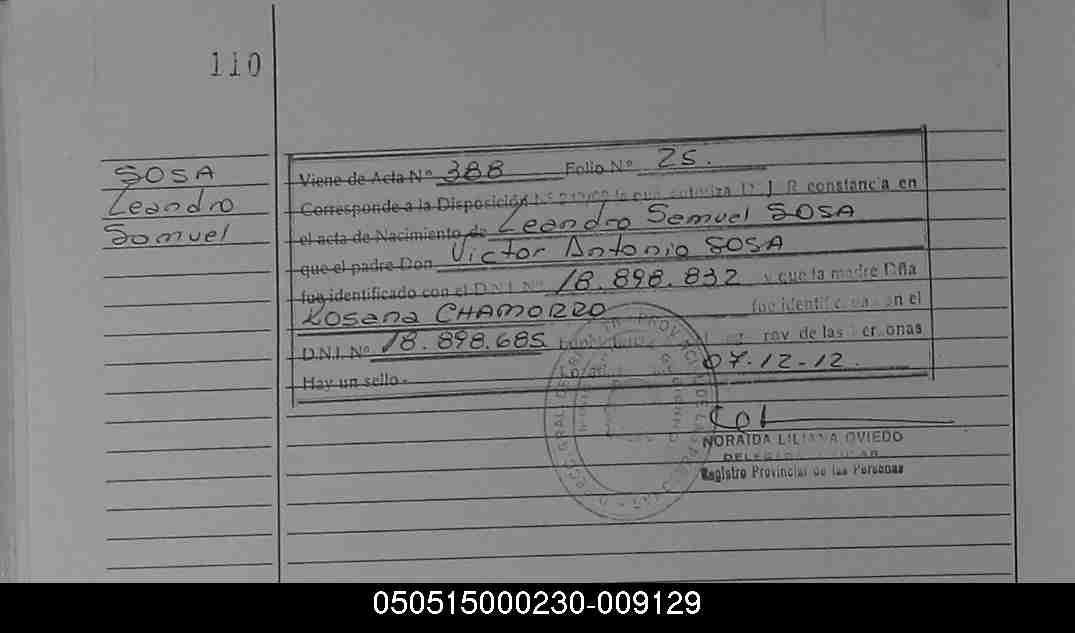 110
SOSA
Leandro
Samuel
Viene de Acta Nº 388 Folio Nº 25.
Corresponde a la Disposición la que autoriza D. J. R constancia en
el acta de Nacimiento de Leandro Semuel SOSA
que el padre Don Victor Antonio SOSA
fue identificado con el D.N.I. Nº 18.898.832 y que la madre Dña
Rosana CHAMORRO fue identificada en el
D.N.I. Nº 18.898.685 Prov de las Personas
Hay un sello. 07-12-12.
NORAIDA LILIANA OVIEDO
DELEGADA
Registro Provincial de las Personas
050515000230-009129